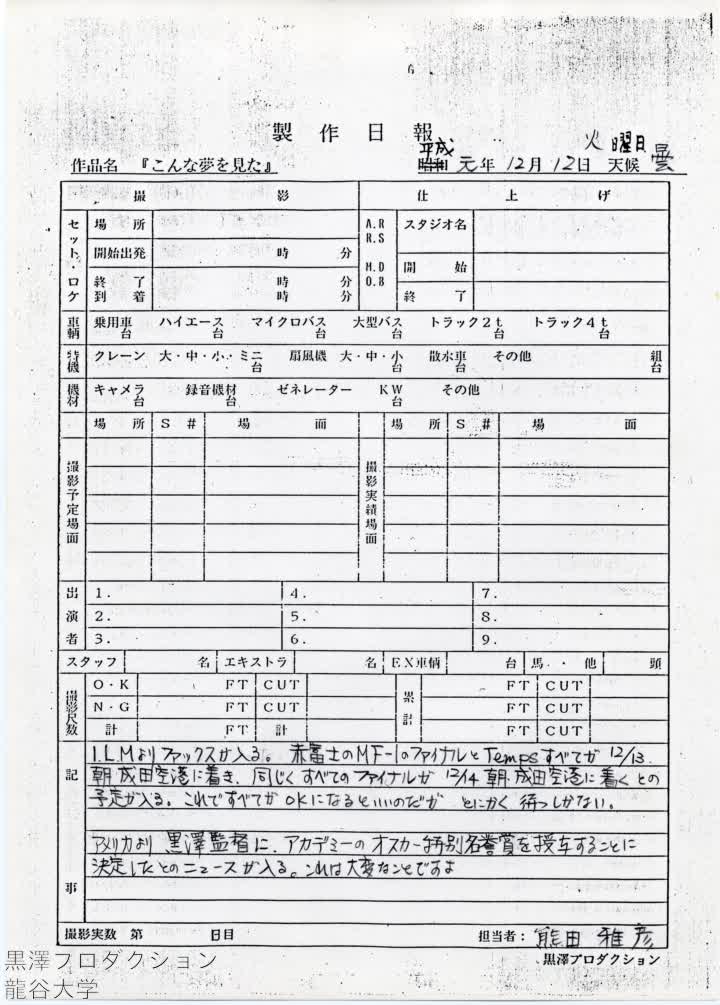 6
製作日報
作品名 『こんな夢を見た』 平成 昭和 元年 12月 12日 火曜日 天候 曇
撮影 仕上げ
セット・ロケ 場所 A.R R.S M.D O.B スタジオ名
開始出発 時 分 開始
終了 時 分 終了
到着 時 分
車輌 乗用車 台 ハイエース 台 マイクロバス 台 大型バス 台 トラック2t 台 トラック4t 台
特機 クレーン 大・中・小・ミニ 台 扇風機 大・中・小 台 散水車 台 その他 組 台
機材 キャメラ 台 録音機材 台 ゼネレーター KW 台 その他
撮影予定場面 場所 S# 場面 撮影実績場面 場所 S# 場面
出演者 1. 4. 7.
2. 5. 8.
3. 6. 9.
スタッフ 名 エキストラ 名 EX車輌 台 馬・他 頭
撮影尺数 O・K FT CUT 累計 FT CUT
N・G FT CUT FT CUT
計 FT 計 FT CUT
記事
I.L.Mよりファックスが入る。赤富士のMF-1のファイナルとTempsすべてが12/13.
朝.成田空港に着き、同じくすべてのファイナルが12/14朝.成田空港に着くとの
予定が入る。これですべてがOKになるといいのだが とにかく待つしかない。
アメリカより黒澤監督に、アカデミーのオスカー特別名誉賞を授与することに
決定したとのニュースが入る。これは大変なことですよ
撮影実数 第 日目 担当者: 熊田雅彦
黒澤プロダクション
黒澤プロダクション
龍谷大学